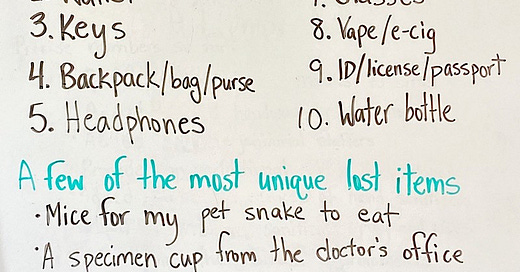 3. Keys
4. Backpack/bag/purse
5. Headphones
8. Vape/e-cig
9. ID/license/passport
10. Water bottle
A few of the most unique lost items
• Mice for my pet snake to eat
• A specimen cup from the doctor's office